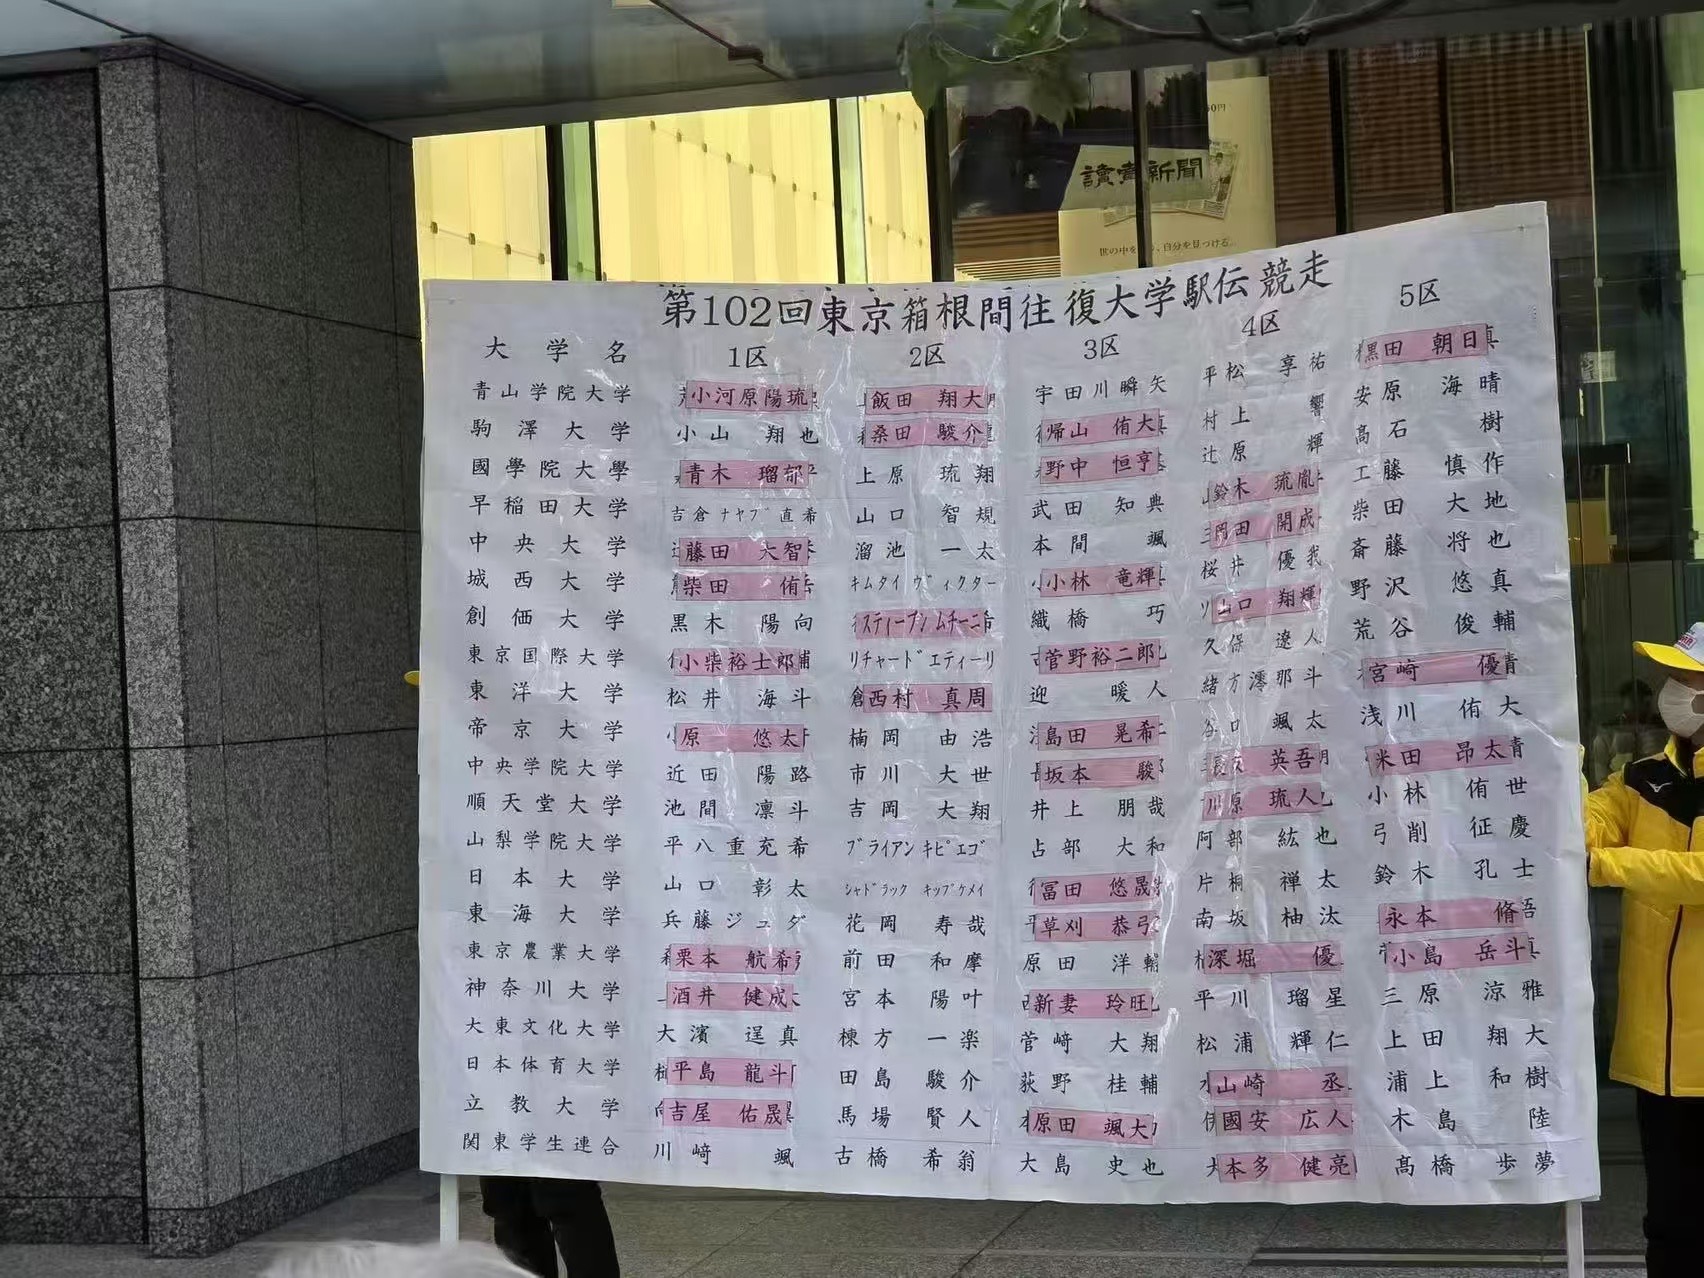 讀賣新聞
世の中を 、自分を見つける。
第102回東京箱根間往復大学駅伝競走
大学名 1区 2区 3区 4区 5区
青山学院大学 小河原陽琉 飯田 翔大 宇田川瞬矢 平松 享祐 黒田 朝日
駒澤大学 小山 翔也 桑田 駿介 帰山 侑大 村上 響 安原 海晴
國學院大學 青木 瑠郁 上原 琉翔 野中 恒亨 辻原 輝 高石 樹
早稲田大学 吉倉ナヤブ直希 山口 智規 武田 知典 鈴木 琉胤 工藤 慎作
中央大学 藤田 大智 溜池 一太 本間 颯 岡田 開成 柴田 大地
城西大学 柴田 侑 キムタイ ヴィクター 小林 竜輝 桜井 優我 斎藤 将也
創価大学 黒木 陽向 スティーブン ムチーニ 織橋 巧 山口 翔輝 野沢 悠真
東京国際大学 小柴裕士郎 リチャード エティーリ 菅野裕二郎 久保 遼人 荒谷 俊輔
東洋大学 松井 海斗 西村 真周 迎 暖人 緒方澪那斗 宮崎 優
帝京大学 原 悠太 楠岡 由浩 島田 晃希 谷口 颯太 浅川 侑大
中央学院大学 近田 陽路 市川 大世 坂本 駿 長友 英吾 米田 昂太
順天堂大学 池間 凛斗 吉岡 大翔 井上 朋哉 川原 琉人 小林 侑世
山梨学院大学 平八重充希 ブライアン キピエゴ 占部 大和 阿部 紘也 弓削 征慶
日本大学 山口 彰太 シャドラック キップケメイ 冨田 悠晟 片桐 禅太 鈴木 孔士
東海大学 兵藤ジュダ 花岡 寿哉 草刈 恭弓 南坂 柚汰 永本 脩
東京農業大学 栗本 航希 前田 和摩 原田 洋輔 深堀 優 小島 岳斗
神奈川大学 酒井 健成 宮本 陽叶 新妻 玲旺 平川 瑠星 三原 涼雅
大東文化大学 大濱 逞真 棟方 一楽 菅﨑 大翔 松浦 輝仁 上田 翔大
日本体育大学 平島 龍斗 田島 駿介 荻野 桂輔 山崎 丞 浦上 和樹
立教大学 吉屋 佑晟 馬場 賢人 原田 颯大 國安 広人 木島 陸
関東学生連合 川﨑 颯 古橋 希翁 大島 史也 本多 健亮 髙橋 歩夢